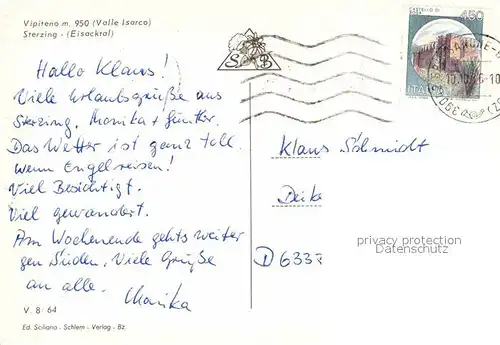 Vipiteno m. 950 (Valle Isarco)
Sterzing - (Eisacktal)
Hallo Klaus!
Viele Urlaubsgrüße aus
Sterzing, Monika + Günther.
Das Wetter ist ganz toll.
Wenn Engel reisen!
Viel Besichtigt.
Viel gewandert.
Am Wochenende gehts weiter
gen Süden. Viele Grüße
an alle. Monika
V. 8 64
Ed. Sciliano - Schlern - Verlag - Bz.
S B
450
ITALIA
Klaus Schmidt
D 633
privacy protection
Datenschutz